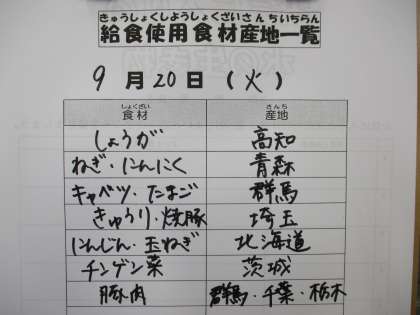 きゅうしょくしようしょくざいさんちいちらん
給食使用食材産地一覧
9月20日(火)
しょくざい さんち
食材 産地
しょうが 高知
ねぎ・にんにく 青森
キャベツ・たまご 群馬
きゅうり・焼豚 埼玉
にんじん・玉ねぎ 北海道
チンゲン菜 茨城
豚肉 群馬・千葉・栃木